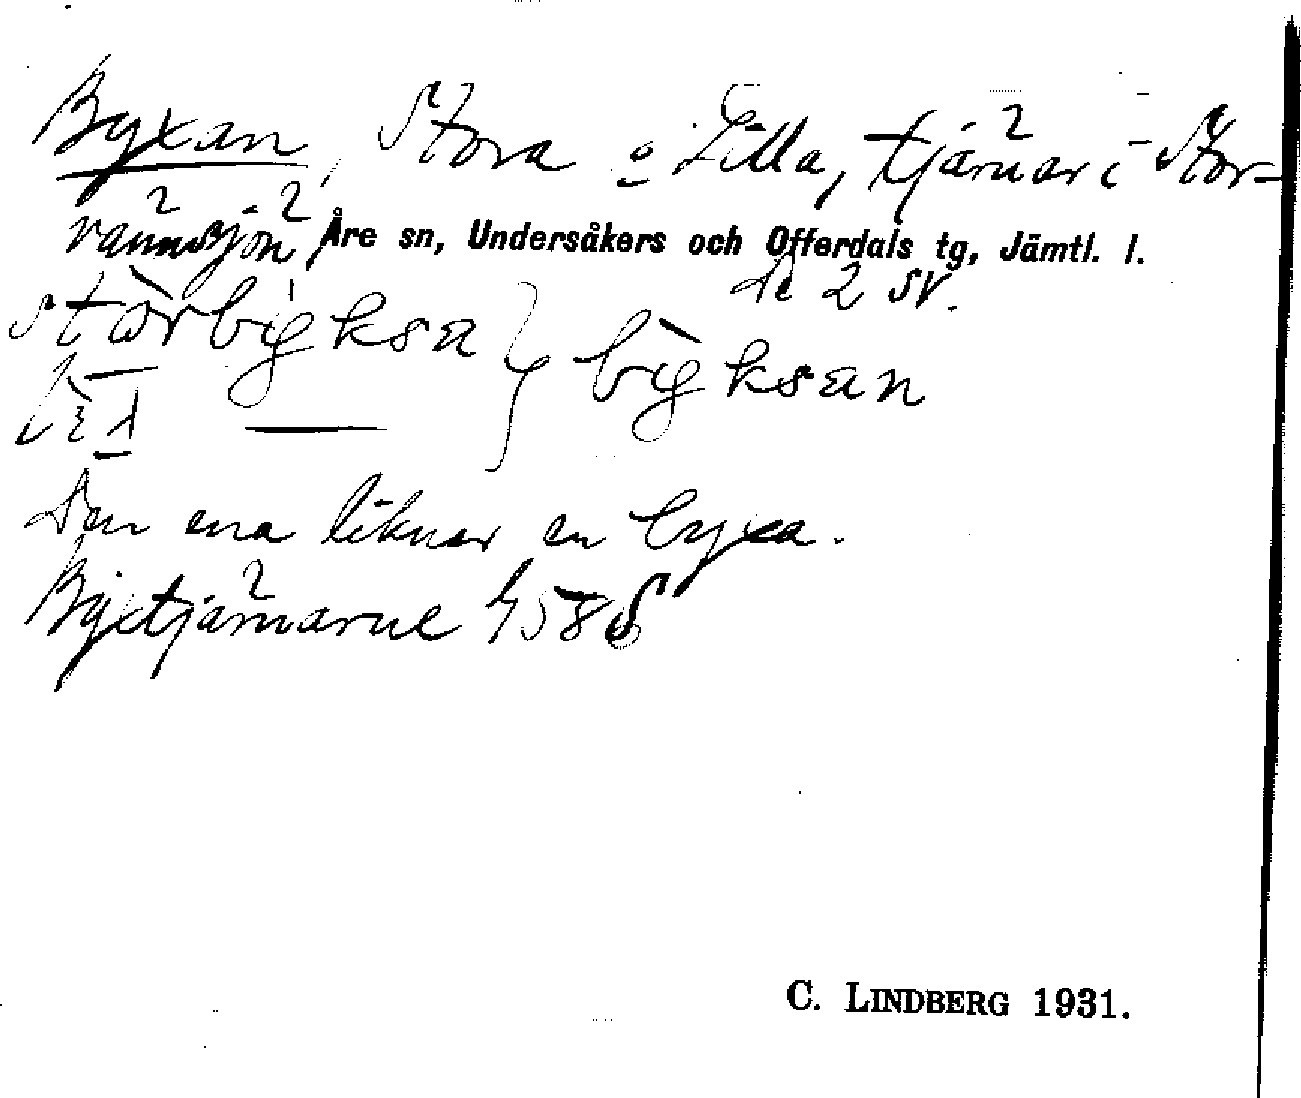 Byxan, Stora o Lilla, tjärnar i Stor-
rännsjön, Åre sn, Undersåkers och Offerdals tg, Jämtl. l.
De 2 sv.
størbyksa } byksan
Den ena liknar en byxa.
Byxtjärnarne 458 S
C. LINDBERG 1931.